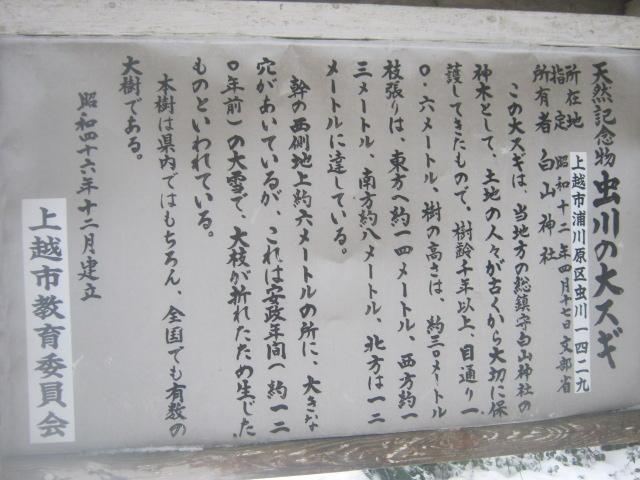 天然記念物 虫川の大スギ
所在地 上越市浦川原区虫川一四二九
指定 昭和十二年四月十七日文部省
所有者 白山神社
この大スギは、当地方の総鎮守白山神社の
神木として、土地の人々が古くから大切に保
護してきたもので、樹齢千年以上、目通り一
〇・六メートル、樹の高さは、約三〇メートル
枝張りは、東方へ約一四メートル、西方約一
三メートル、南方約八メートル、北方は一二
メートルに達している。
幹の西側地上約六メートルの所に、大きな
穴があいているが、これは安政年間(約一二
〇年前)の大雪で、大枝が折れたため生じた
ものといわれている。
本樹は県内ではもちろん、全国でも有数の
大樹である。
昭和四十六年十二月建立
上越市教育委員会